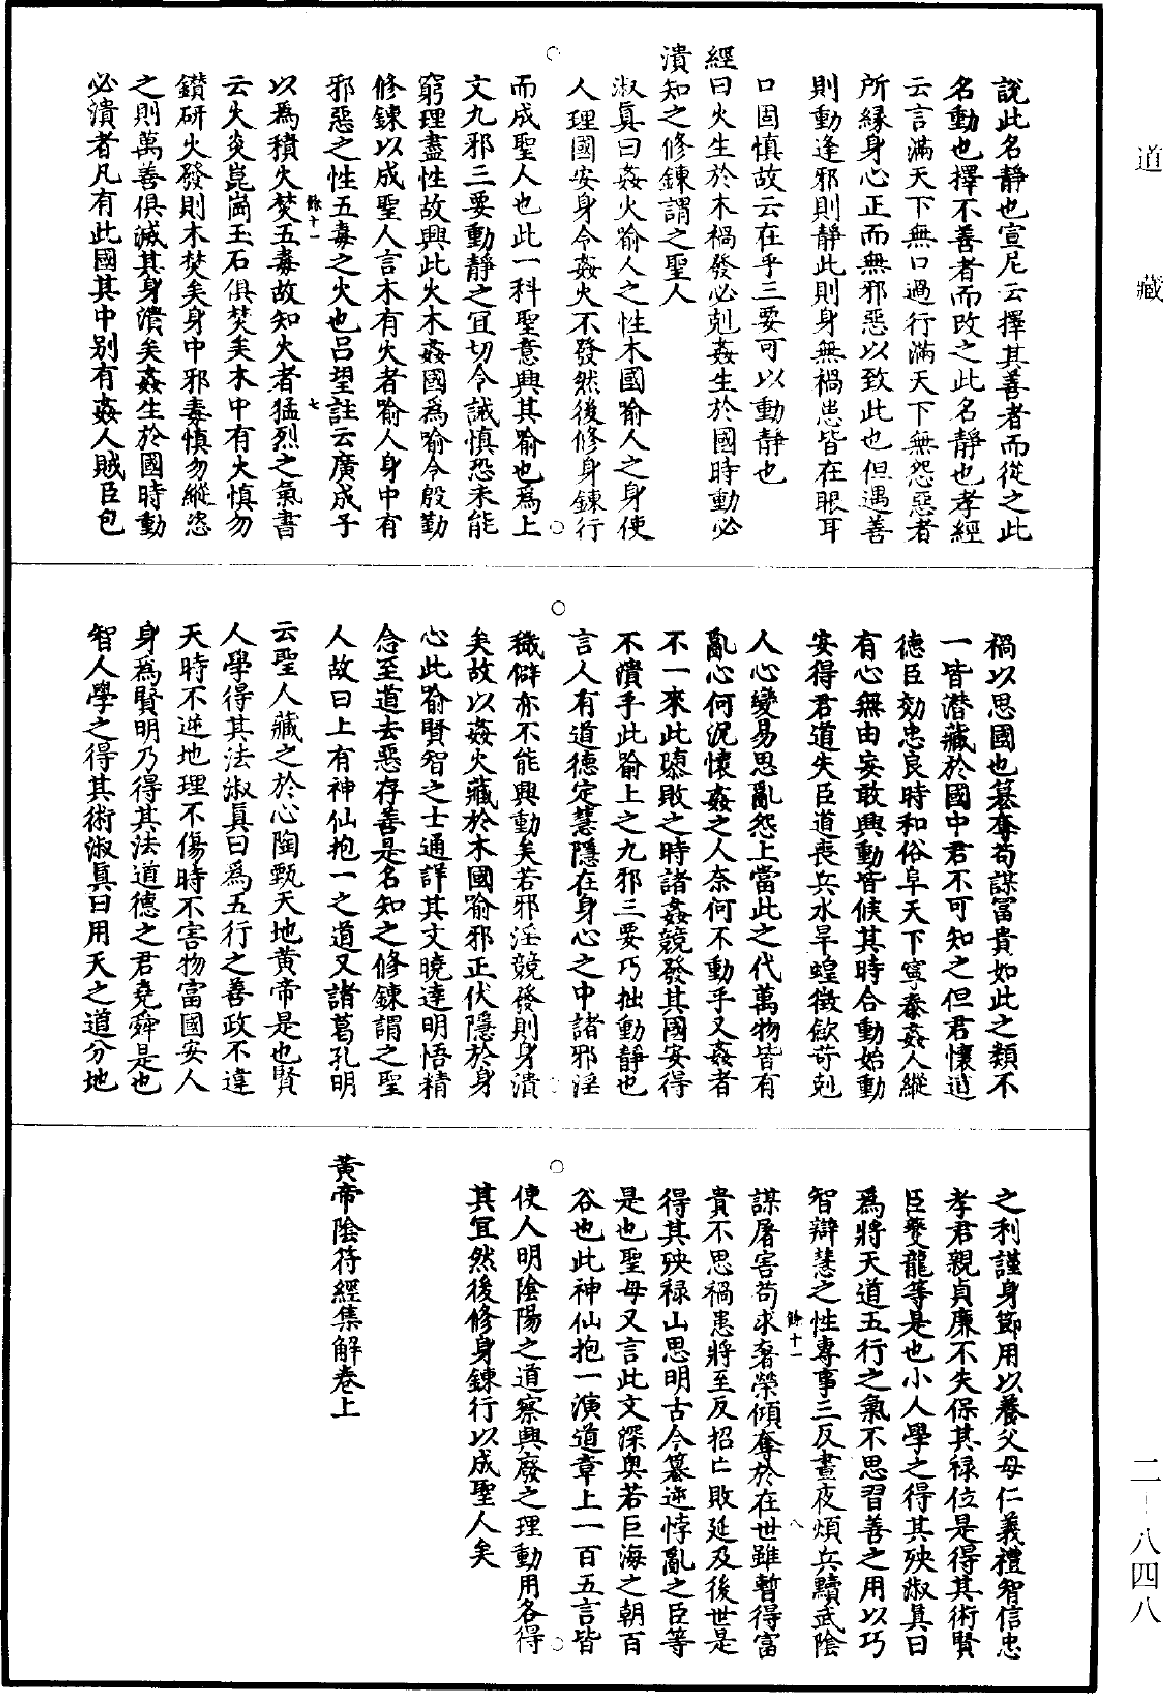 道藏
說此名靜也宣尼云擇其善者而從之此
名動也擇不善者而改之此名靜也孝經
云言滿天下無口過行滿天下無怨惡者
所緣身心正而無邪惡以致此也但遇善
則動逢邪則靜此則身無禍患皆在眼耳
口固慎故云在乎三要可以動靜也
經曰火生於木禍發必剋姦生於國時動必
潰知之修鍊謂之聖人
淑真曰姦火喻人之性木國喻人之身使
人理國安身令姦火不發然後修身鍊行
而成聖人也此一科聖意興其喻也為上
文九邪三要動靜之宜切令誡慎恐未能
窮理盡性故興此火木姦國為喻令殷勤
修鍊以成聖人言木有火者喻人身中有
邪惡之性五毒之火也呂望註云廣成子
餘十一
七
以為積火焚五毒故知火者猛烈之氣書
云火炎崑崗玉石俱焚矣木中有火慎勿
鑚研火發則木焚矣身中邪毒慎勿縱恣
之則萬善俱滅其身潰矣姦生於國時動
必潰者凡有此國其中別有姦人賊臣包
禍以思國也篡奪苟謀富貴如此之類不
一皆潛藏於國中君不可知之但君懷道
德臣効忠良時和俗阜天下寧泰姦人縱
有心無由妄敢興動皆候其時合動始動
安得君道失臣道喪兵水旱蝗徵歛苛剋
人心變易思亂怨上當此之代萬物皆有
亂心何況懷姦之人奈何不動乎又姦者
不一來此隳敗之時諸姦競發其國安得
不潰乎此喻上之九邪三要巧拙動靜也
言人有道德定慧隱在身心之中諸邪淫
穢僻亦不能興動矣若邪淫競發則身潰
矣故以姦火藏於木國喻邪正伏隱於身
心此喻賢智之士通詳其文曉達明悟精
念至道去惡存善是名知之修鍊謂之聖
人故曰上有神仙抱一之道又諸葛孔明
云聖人藏之於心陶甄天地黃帝是也賢
人學得其法淑真曰為五行之善政不違
天時不逆地理不傷時不害物富國安人
身為賢明乃得其法道德之君堯舜是也
智人學之得其術淑真曰用天之道分地
之利謹身節用以養父母仁義禮智信忠
孝君親貞廉不失保其祿位是得其術賢
臣夔龍等是也小人學之得其殃淑真曰
為將天道五行之氣不思習善之用以巧
智辯慧之性專事三反晝夜煩兵黷武陰
餘十一
八
謀屠害苟求奢榮傾奪於在世雖暫得富
貴不思禍患將至反招亡敗延及後世是
得其殃祿山思明古今篡逆悖亂之臣等
是也聖母又言此文深奧若巨海之朝百
谷也此神仙抱一演道章上一百五言皆
使人明陰陽之道察興廢之理動用各得
其宜然後修身鍊行以成聖人矣
黃帝陰符經集解卷上
二-八四八